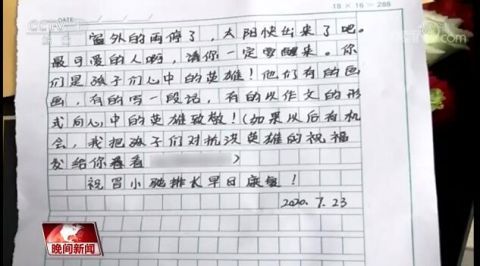 CCTV
DATE
18 × 16 = 288
窗外的雨停了，太阳快出来了吧。
最可爱的人啊，请你一定要醒来。你
们是孩子们心中的英雄！他们有的画
画，有的写一段话，有的以作文的形
式向心中的英雄致敬！(如果以后有机
会，我把孩子们对抗洪英雄的祝福
发给你看看 )
祝冒小驰排长早日康复！
2020.7.23
晚间新闻